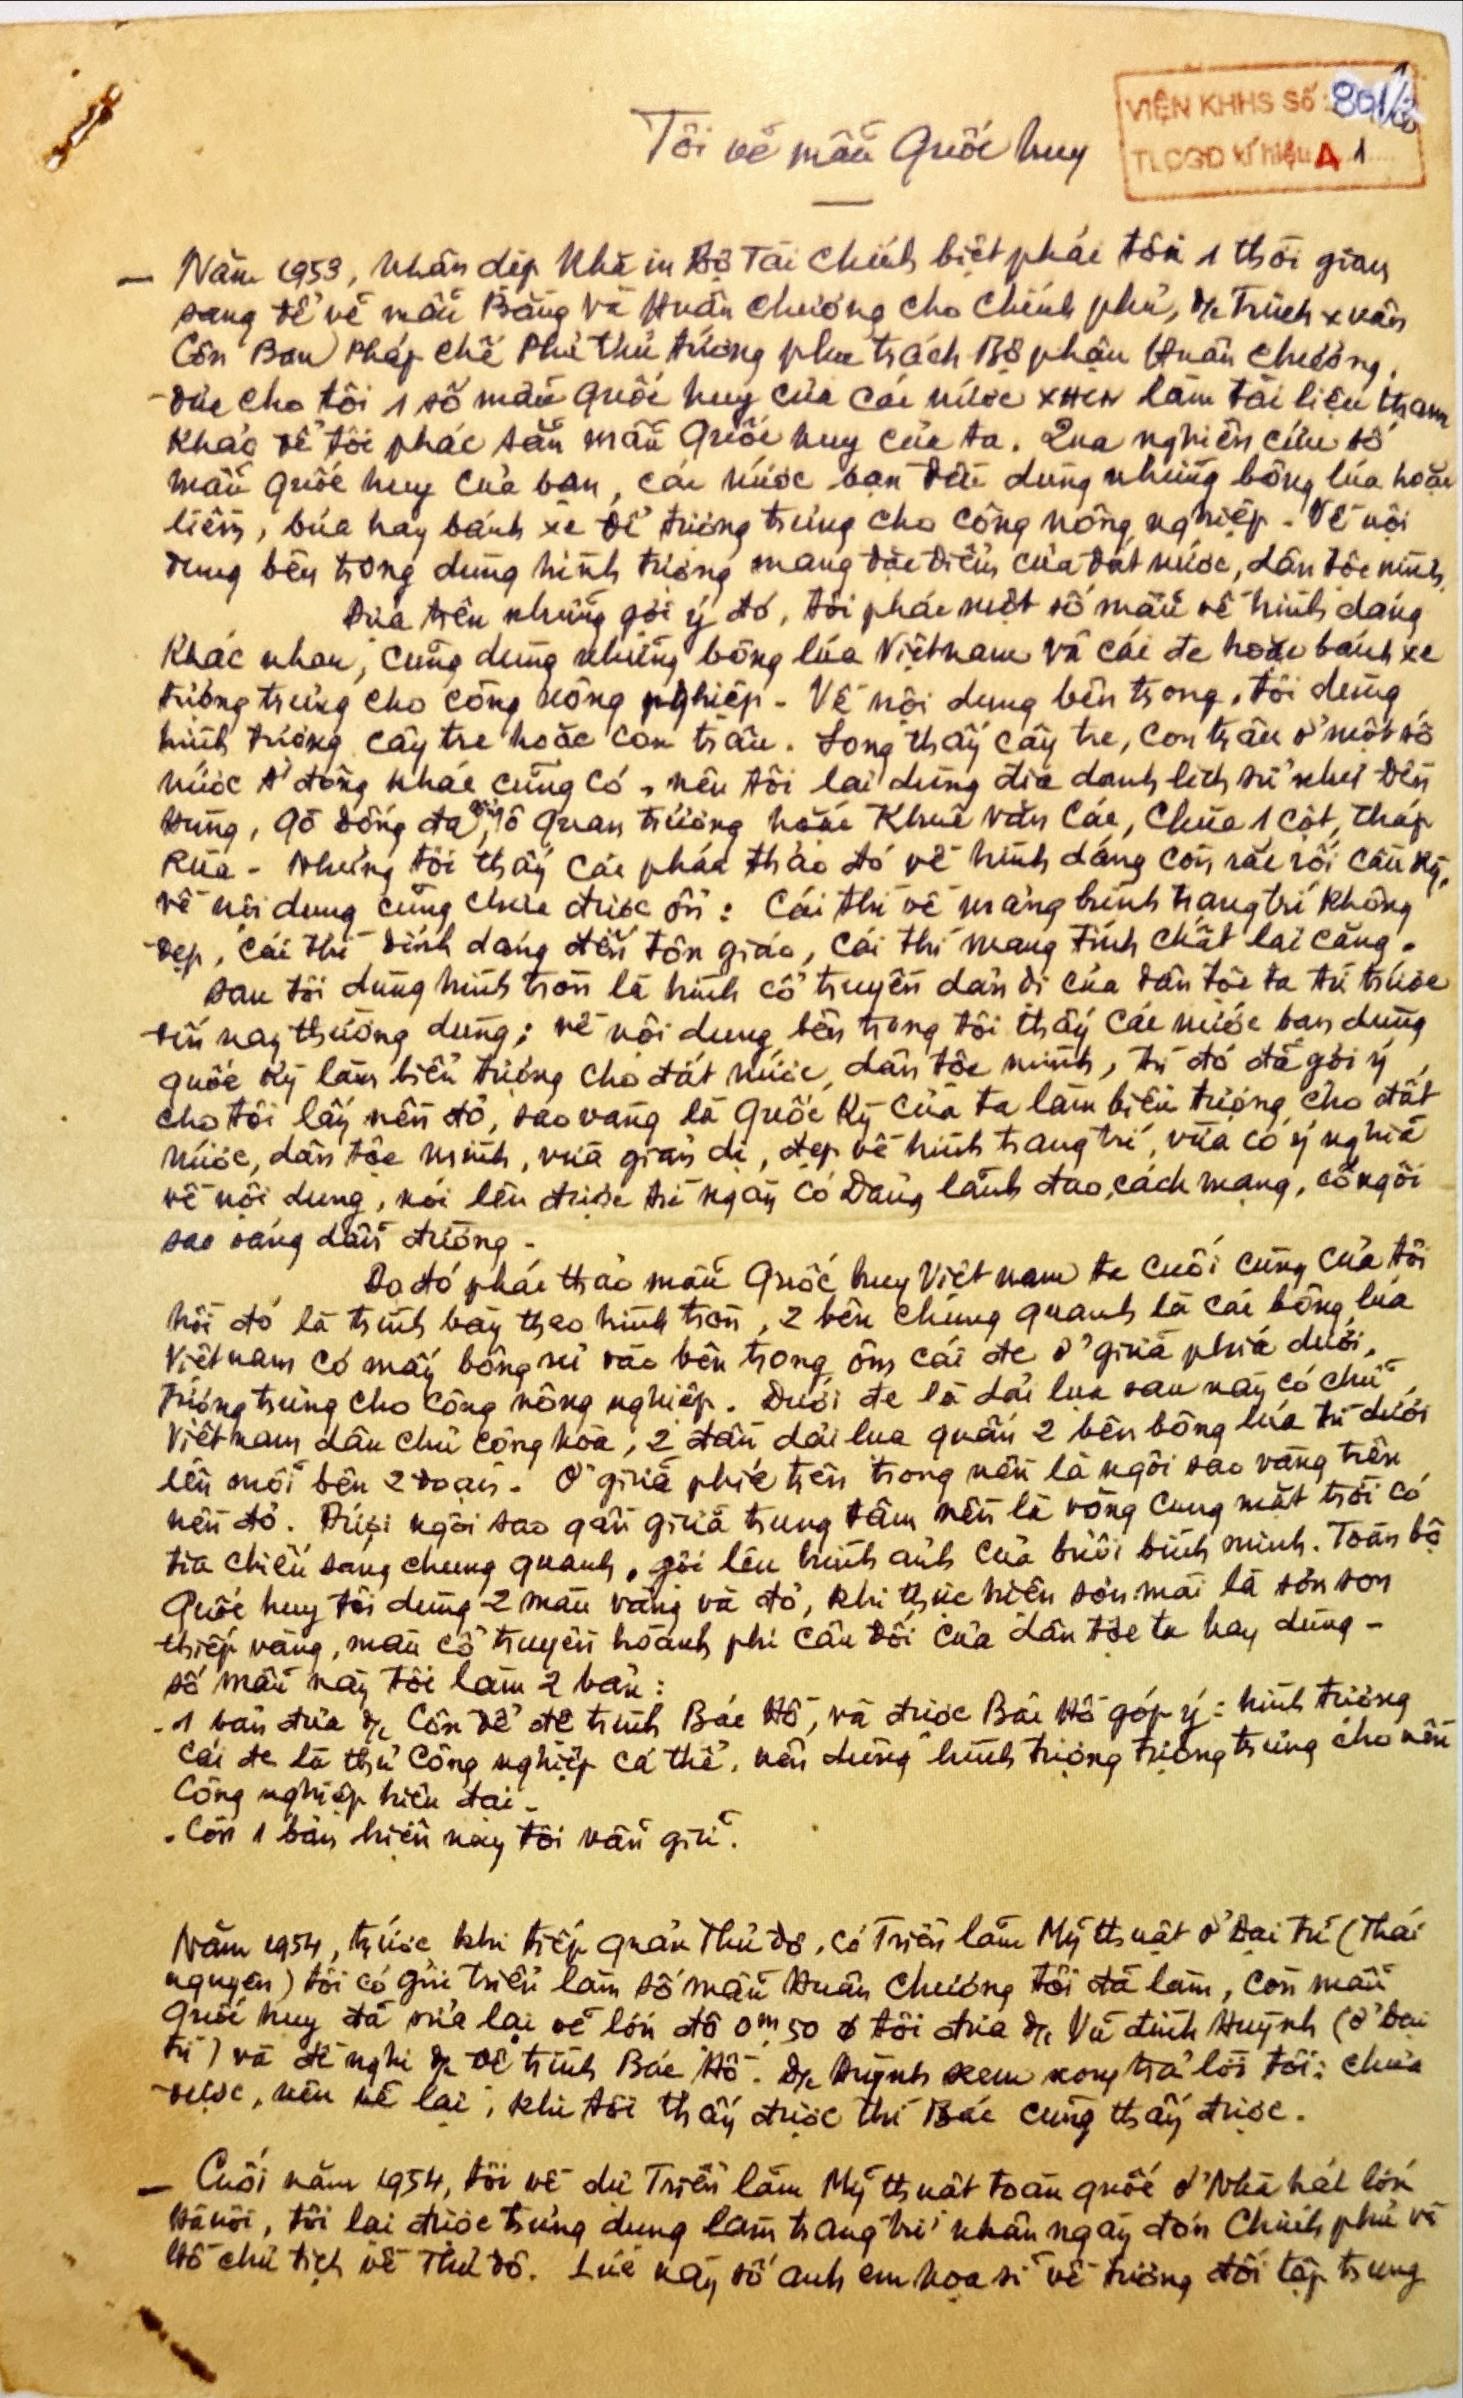 VIỆN KHHS Số: 801
TLCGD kí hiệu A 1
Tôi vẽ mẫu Quốc huy
– Năm 1953, nhân dịp Nhà in Bộ Tài chính biệt phái tôi 1 thời gian
sang để vẽ mẫu Bằng và Huân chương cho chính phủ, đ/c Trịnh xuân
Côn Ban Pháp chế Phủ thủ tướng phụ trách Bộ phận Huân chương,
đưa cho tôi 1 số mẫu Quốc huy của các nước XHCN làm tài liệu tham
khảo để tôi phác sẵn mẫu Quốc huy của ta. Qua nghiên cứu số
mẫu Quốc huy của bạn, các nước bạn đều dùng những bông lúa hoặc
liềm, búa hay bánh xe để tượng trưng cho công nông nghiệp - Về nội
dung bên trong dùng hình tượng mang đặc điểm của đất nước, dân tộc mình.
Dựa trên những gợi ý đó, tôi phác một số mẫu về hình dáng
khác nhau, cũng dùng những bông lúa Việt nam và cái đe hoặc bánh xe
tượng trưng cho công nông nghiệp - Về nội dung bên trong, tôi dùng
hình tượng cây tre hoặc con trâu. Song thấy cây tre, con trâu ở một số
nước Á đông khác cũng có, nên tôi lại dùng địa danh lịch sử như Đền
Hùng, Gò Đống đa, ô Quan trưởng hoặc Khuê văn Các, Chùa 1 cột, Tháp
Rùa - Nhưng tôi thấy các phác thảo đó về hình dáng còn rắc rối cầu kỳ,
về nội dung cũng chưa được ổn: Cái thì về mảng hình trang trí không
đẹp, cái thì dính dáng đến tôn giáo, cái thì mang tính chất lai căng.
Sau tôi dùng hình tròn là hình cổ truyền dản dị của dân tộc ta từ trước
đến nay thường dùng; về nội dung bên trong tôi thấy các nước bạn dùng
quốc kỳ làm biểu tượng cho đất nước, dân tộc mình, từ đó đã gợi ý
cho tôi lấy nền đỏ, sao vàng là Quốc kỳ của ta làm biểu tượng cho đất
nước, dân tộc mình, vừa giản dị, đẹp về hình trang trí, vừa có ý nghĩa
về nội dung, nói lên được từ ngày có Đảng lãnh đạo, cách mạng, có ngôi
sao sáng dẫn đường -
Do đó phác thảo mẫu Quốc huy Việt nam ta cuối cùng của tôi
hồi đó là trình bày theo hình tròn, 2 bên chung quanh là các bông lúa
Việt nam có mấy bông rủ vào bên trong ôm cái đe ở giữa phía dưới,
tượng trưng cho công nông nghiệp. Dưới đe là dải lụa sau này có chữ
Việt nam dân chủ cộng hòa, 2 đầu dải lụa quấn 2 bên bông lúa từ dưới
lên mỗi bên 2 đoạn. Ở giữa phía trên trong nền là ngôi sao vàng trên
nền đỏ. Dưới ngôi sao gần giữa trung tâm nền là vòng cung mặt trời có
tia chiếu sáng chung quanh, gợi lên hình ảnh của buổi bình minh. Toàn bộ
Quốc huy tôi dùng 2 màu vàng và đỏ, khi thực hiện sơn mài là sơn son
thiếp vàng, màu cổ truyền hoành phi câu đối của dân tộc ta hay dùng -
Số mẫu này tôi làm 2 bản:
- 1 bản đưa đ/c Côn để đệ trình Bác Hồ, và được Bác Hồ góp ý: hình tượng
cái đe là thủ công nghiệp cá thể, nên dùng hình tượng tượng trưng cho nền
Công nghiệp hiện đại -
- Còn 1 bản hiện nay tôi vẫn giữ.
Năm 1954, trước khi tiếp quản Thủ đô, có Triển lãm Mỹ thuật ở Đại Từ (Thái
nguyên) tôi có gửi triển lãm số mẫu Huân chương tôi đã làm, còn mẫu
Quốc huy đã sửa lại vẽ lớn độ 0m50 ø tôi đưa đ/c Vũ đình Huỳnh (ở Đại
từ) và đề nghị đ/c đệ trình Bác Hồ. Đ/c Huỳnh xem xong trả lời tôi: chưa
được, nên vẽ lại, khi tôi thấy được thì Bác cũng thấy được.
– Cuối năm 1954, tôi về dự Triển lãm Mỹ thuật toàn quốc ở Nhà hát lớn
Hà nội, tôi lại được trưng dụng làm trang trí nhân ngày đón Chính phủ và
Hồ chủ tịch về Thủ đô. Lúc này số anh em họa sĩ về tương đối tập trung